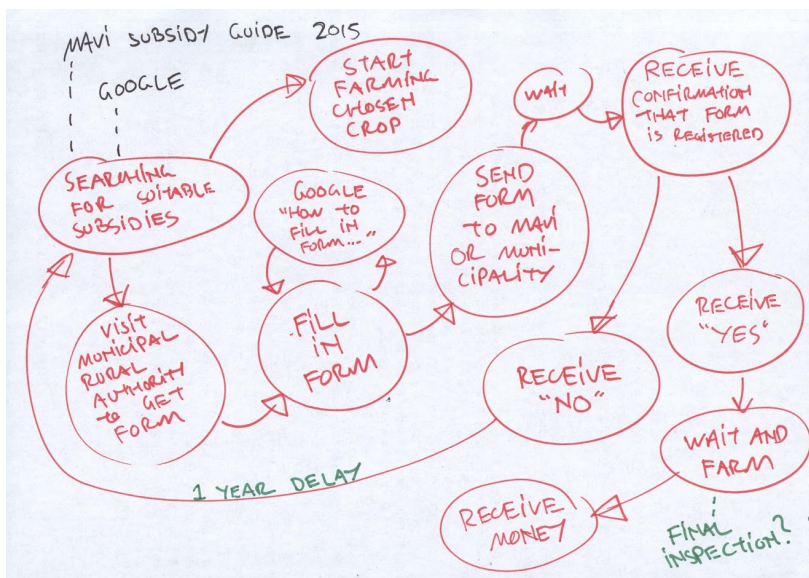 MAVI SUBSIDY GUIDE 2015
GOOGLE
SEARCHING
FOR SUITABLE
SUBSIDIES
START
FARMING
CHOSEN
CROP
VISIT
MUNICIPAL
RURAL
AUTHORITY
to GET
FORM
GOOGLE
"HOW to
FILL IN
FORM..."
FILL
IN
FORM
SEND
FORM
TO MAVI
OR MUNI-
CIPALITY
WAIT
RECEIVE
CONFIRMATION
THAT FORM
IS REGISTERED
RECEIVE
"NO"
1 YEAR DELAY
RECEIVE
"YES"
WAIT AND
FARM
FINAL
INSPECTION?
RECEIVE
MONEY